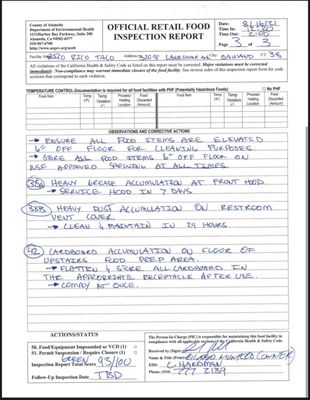 County of Alameda
Department of Environmental Health
1131 Harbor Bay Parkway, Suite 200
Alameda, CA 94502-6577
510-567-6700
www.acgov.org/aceh
OFFICIAL RETAIL FOOD
INSPECTION REPORT
Date: 8/16/21
Time In:
Time Out: 2:00
Page 3 of 3
Facility Name: RICO RICO TACO
Address: 3208 LAKESHORE AVE
City: OAKLAND
CT 38
All violations of the California Health & Safety Code as listed on this report must be corrected. Major violations must be corrected
immediately. Non-compliance may warrant immediate closure of the facility. See reverse sides of this inspection report form for code
sections that correspond to each violation.
TEMPERATURE CONTROL (Documentation is required for all food facilities with PHF (Potentially Hazardous Foods)
No PHF
Food Item Temp (ºF) Temp. Violation Processing Holding Location Food Discarded Amount Food Item Temp (ºF) Temp. Violation Processing Holding Location Food Discarded Amount
OBSERVATIONS AND CORRECTIVE ACTIONS
→ ENSURE ALL FOOD ITEMS ARE ELEVATED
6" OFF FLOOR FOR CLEANING PURPOSES.
→ STORE ALL FOOD ITEMS 6" OFF FLOOR ON
NSF APPROVED SHELVING AT ALL TIMES.
HEAVY GREASE ACCUMULATION AT FRONT HOOD
→ SERVICE HOOD IN 7 DAYS.
38B HEAVY DUST ACCUMULATION ON RESTROOM
VENT COVER.
→ CLEAN & MAINTAIN IN 24 HOURS
42 CARDBOARD ACCUMULATION ON FLOOR OF
UPSTAIRS FOOD PREP AREA.
→ FLATTEN & STORE ALL CARDBOARD IN
THE APPROPRIATE RECEPTACLE AFTER USE.
→ COMPLY AT ONCE.
ACTIONS/STATUS
50. Food/Equipment Impounded or VCD (1)
51. Permit Suspension / Require Closure (1)
GREEN
Inspection Report Total Score 93/100
Follow-Up Inspection Date TBD
The Person-In-Charge (PIC) is responsible for maintaining this food facility in
compliance with all applicable sections of the California Health & Safety Code.
Received by (Sign)
Name & Title (Print) (OWNER)
EHS: L. HARDMAN
Phone: 777 2139